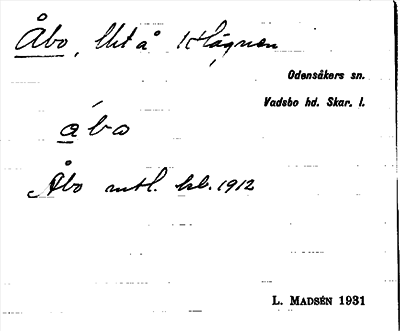 Åbo, lht å Hägnen
Odensåkers sn.
Vadsbo hd. Skar. l.
åbo
Åbo mtl. kb. 1912
L. MADSÉN 1931